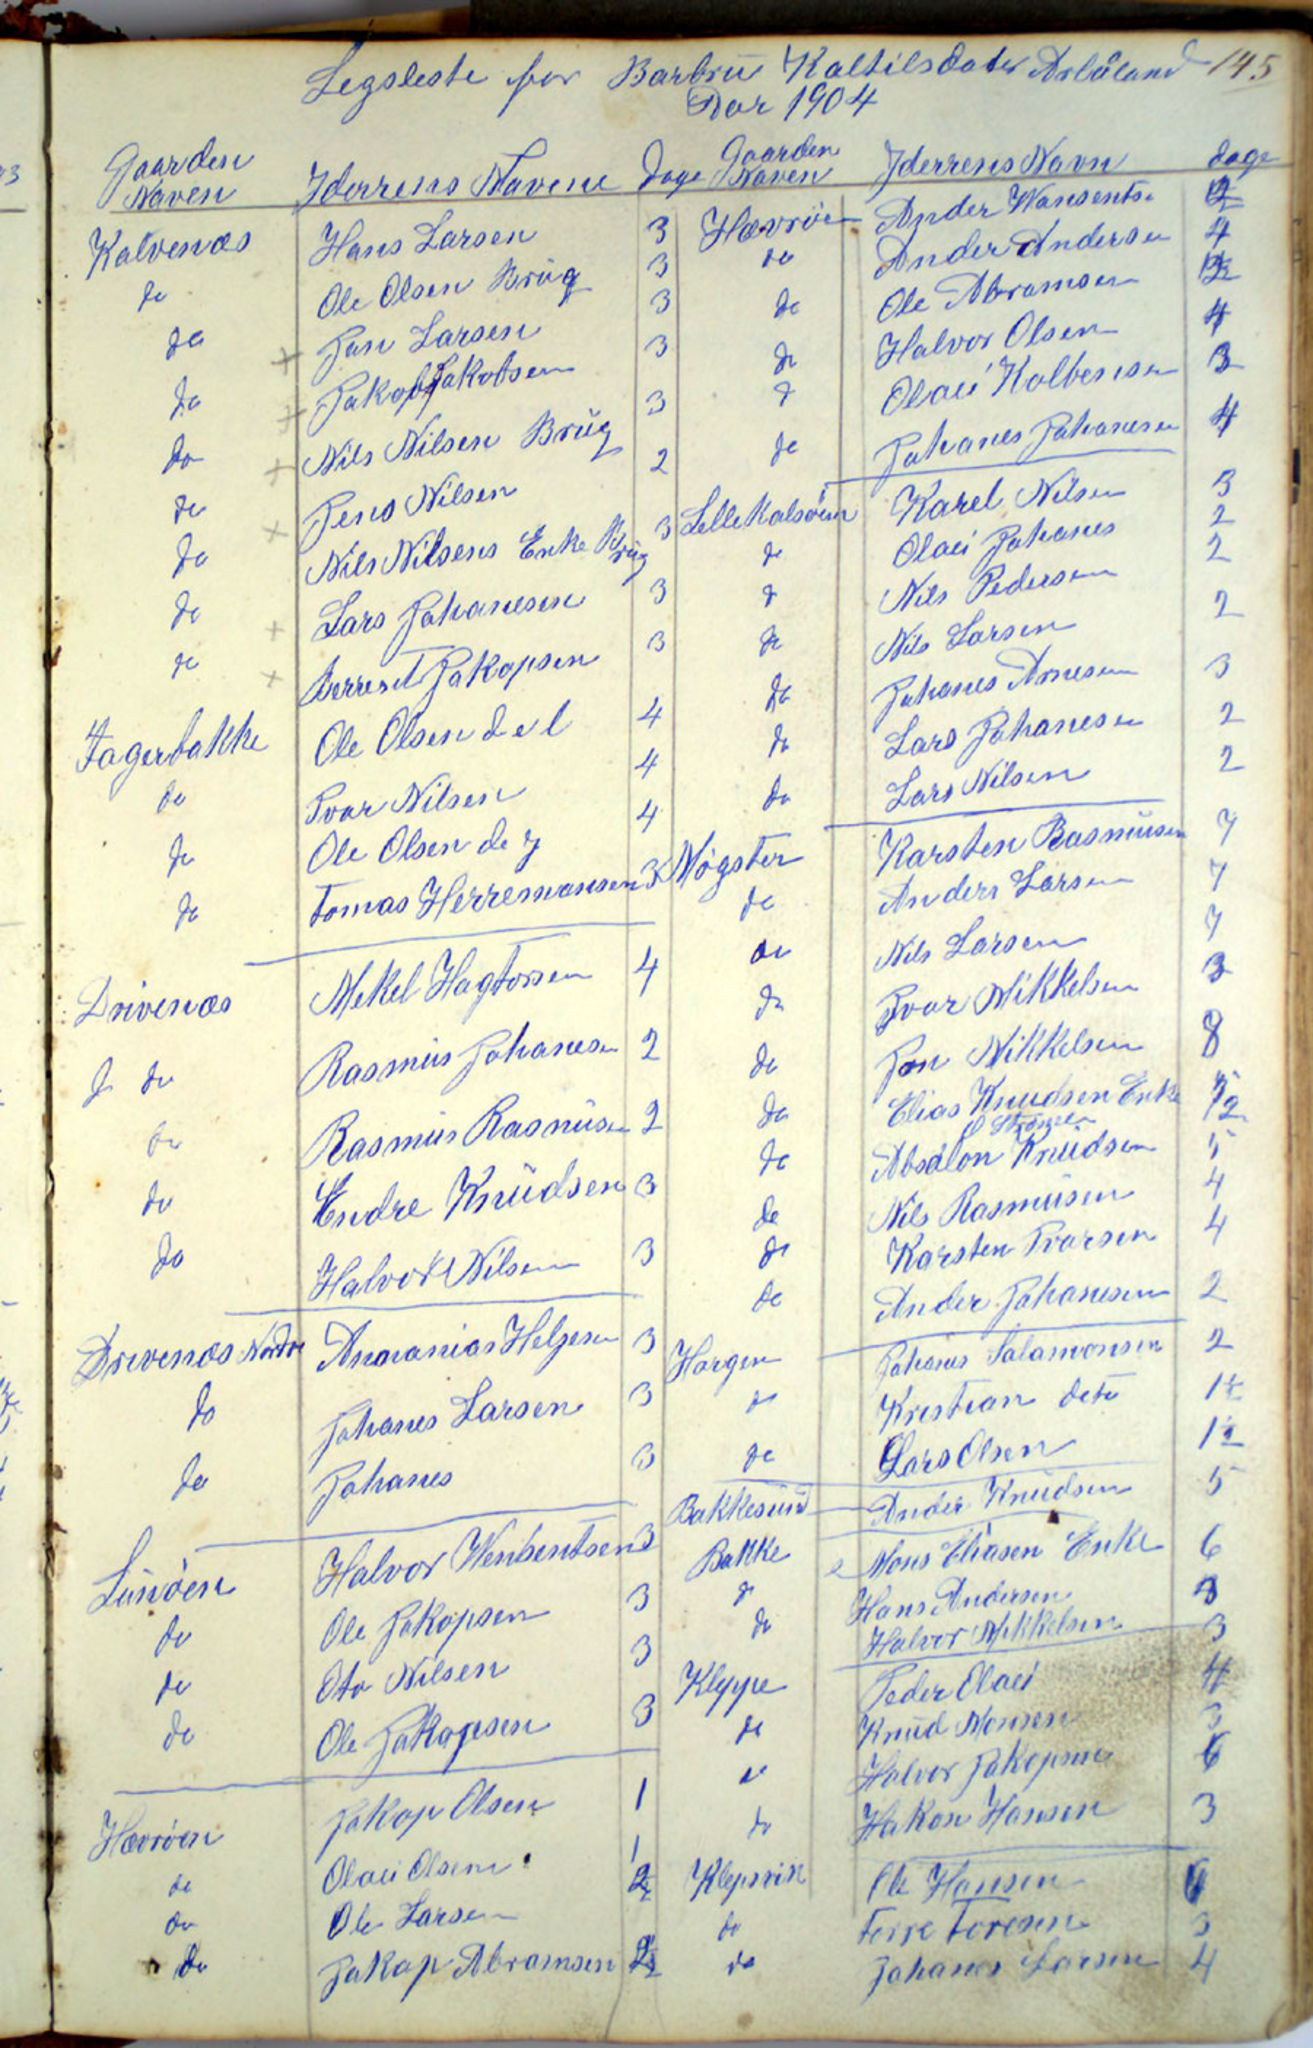 Legsleste for Barbru Kaltilsdater Arlåland 145
Aar 1904
Gaarden Naven Yderrens Navene Dage
Kalvenæs Hans Larsen 3
do Ole Olsen Brug 3
do Jan Larsen 3
do Jakob Jakobsen 3
do Nils Nilsen Brug 3
do Jens Nilsen 2
do Nils Nilsens Enke Brug 3
do Lars Johanesen 3
do Berrent Jakopsen 3
Fagerbakke Ole Olsen del 4
do Ivar Nilsen 4
do Ole Olsen de y 4
do Tomas Herremansen 3
Drivenæs Mekel Hagtorsen 4
do Rasmus Johanesen 2
do Rasmus Rasmusen 2
do Endre Knudsen 3
do Halvor Nilsen 3
Drevenæs Nordre Ananias Helgesen 3
do Johanes Larsen 3
do Johanes 3
Lunøen Halvor Wenbentsen 3
do Ole Jakopsen 3
do Oto Nilsen 3
do Ole Jakopsen 3
Hævrøen Jakop Olsen 1
do Olai Olsen 1
do Ole Larsen 2½
do Jakop Abramsen 2½
Gaarden Naven Yderrens Navn dage
Hævrøen Ander Wansentsen
do Ander Andersen 4
do Ole Abramsen
do Halvor Olsen 4
do Olai Kolbensen 3
do Johanes Johanesen 4
Lellekalsøen Karel Nilsen 3
do Olai Johanes 2
do Nils Pedersen 2
do Nils Larsen 2
do Johanes Arnesen 3
do Lars Johanesen 2
do Lars Nilsen 2
Møgster Karsten Rasmusen 7
do Anders Larsen 7
do Nils Larsen 7
do Ivar Mikkelsen 3
do Jon Mikkelsen 8
do Elias Knudsen Enke
do Absalon Knudsen 5
do Nils Rasmusen 4
do Karsten Ivarsen 4
do Ander Johanesen 2
Horgen Johanes Salamonsen 2
do Kristian deto 1½
do Lars Olsen 1½
Bakkesund Ander Knudsen 5
Bakke Mons Eliasen Enke 6
do Hans Andersen 3
do Halvor Mikkelsen 3
Kleppe Peder Olai 4
do Knud Monsen 3
do Halvor Jakopsen 6
do Hakon Hansen 3
Klepsvik Ole Hansen 6
do Terje Toresen 3
do Johanes Larsen 4